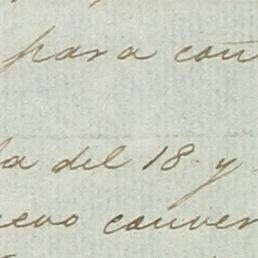 para con
la del 18. y
uevo conven